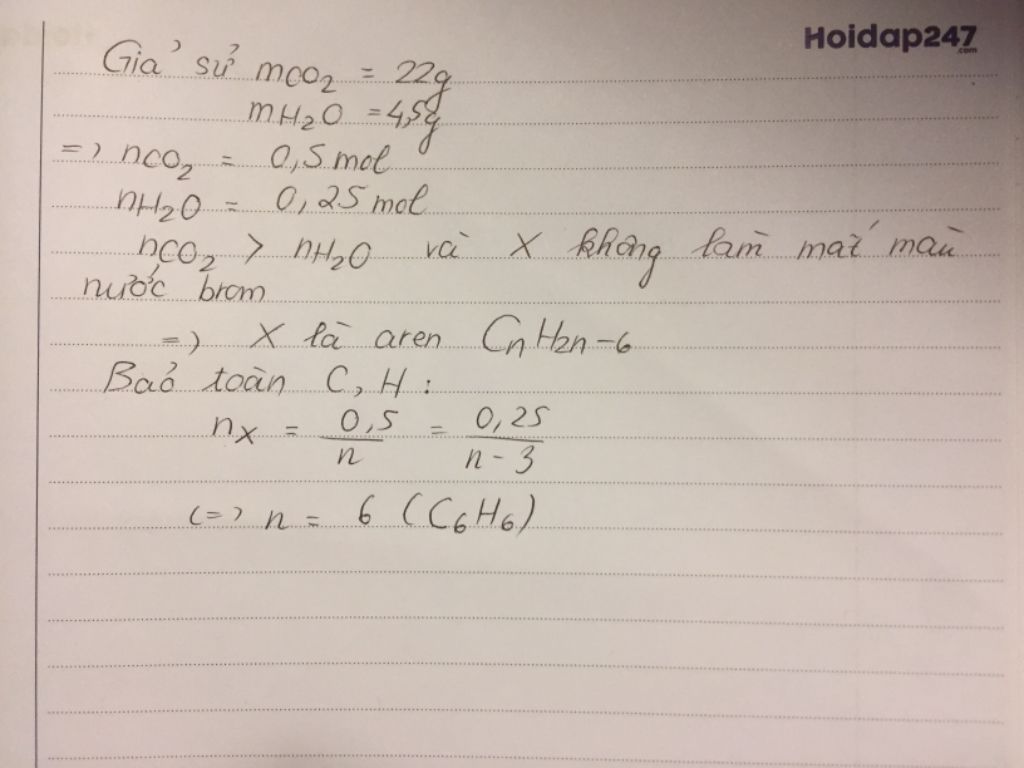 Hoidap247
.com
Giả sử mCO₂ = 22g
mH₂O = 4,5g
=> nCO₂ = 0,5 mol
nH₂O = 0,25 mol
nCO₂ > nH₂O và X không làm mất màu
nước brom
=> X là aren CnH2n-6
Bảo toàn C, H :
nX = 0,5/n = 0,25/(n-3)
<=> n = 6 (C₆H₆)